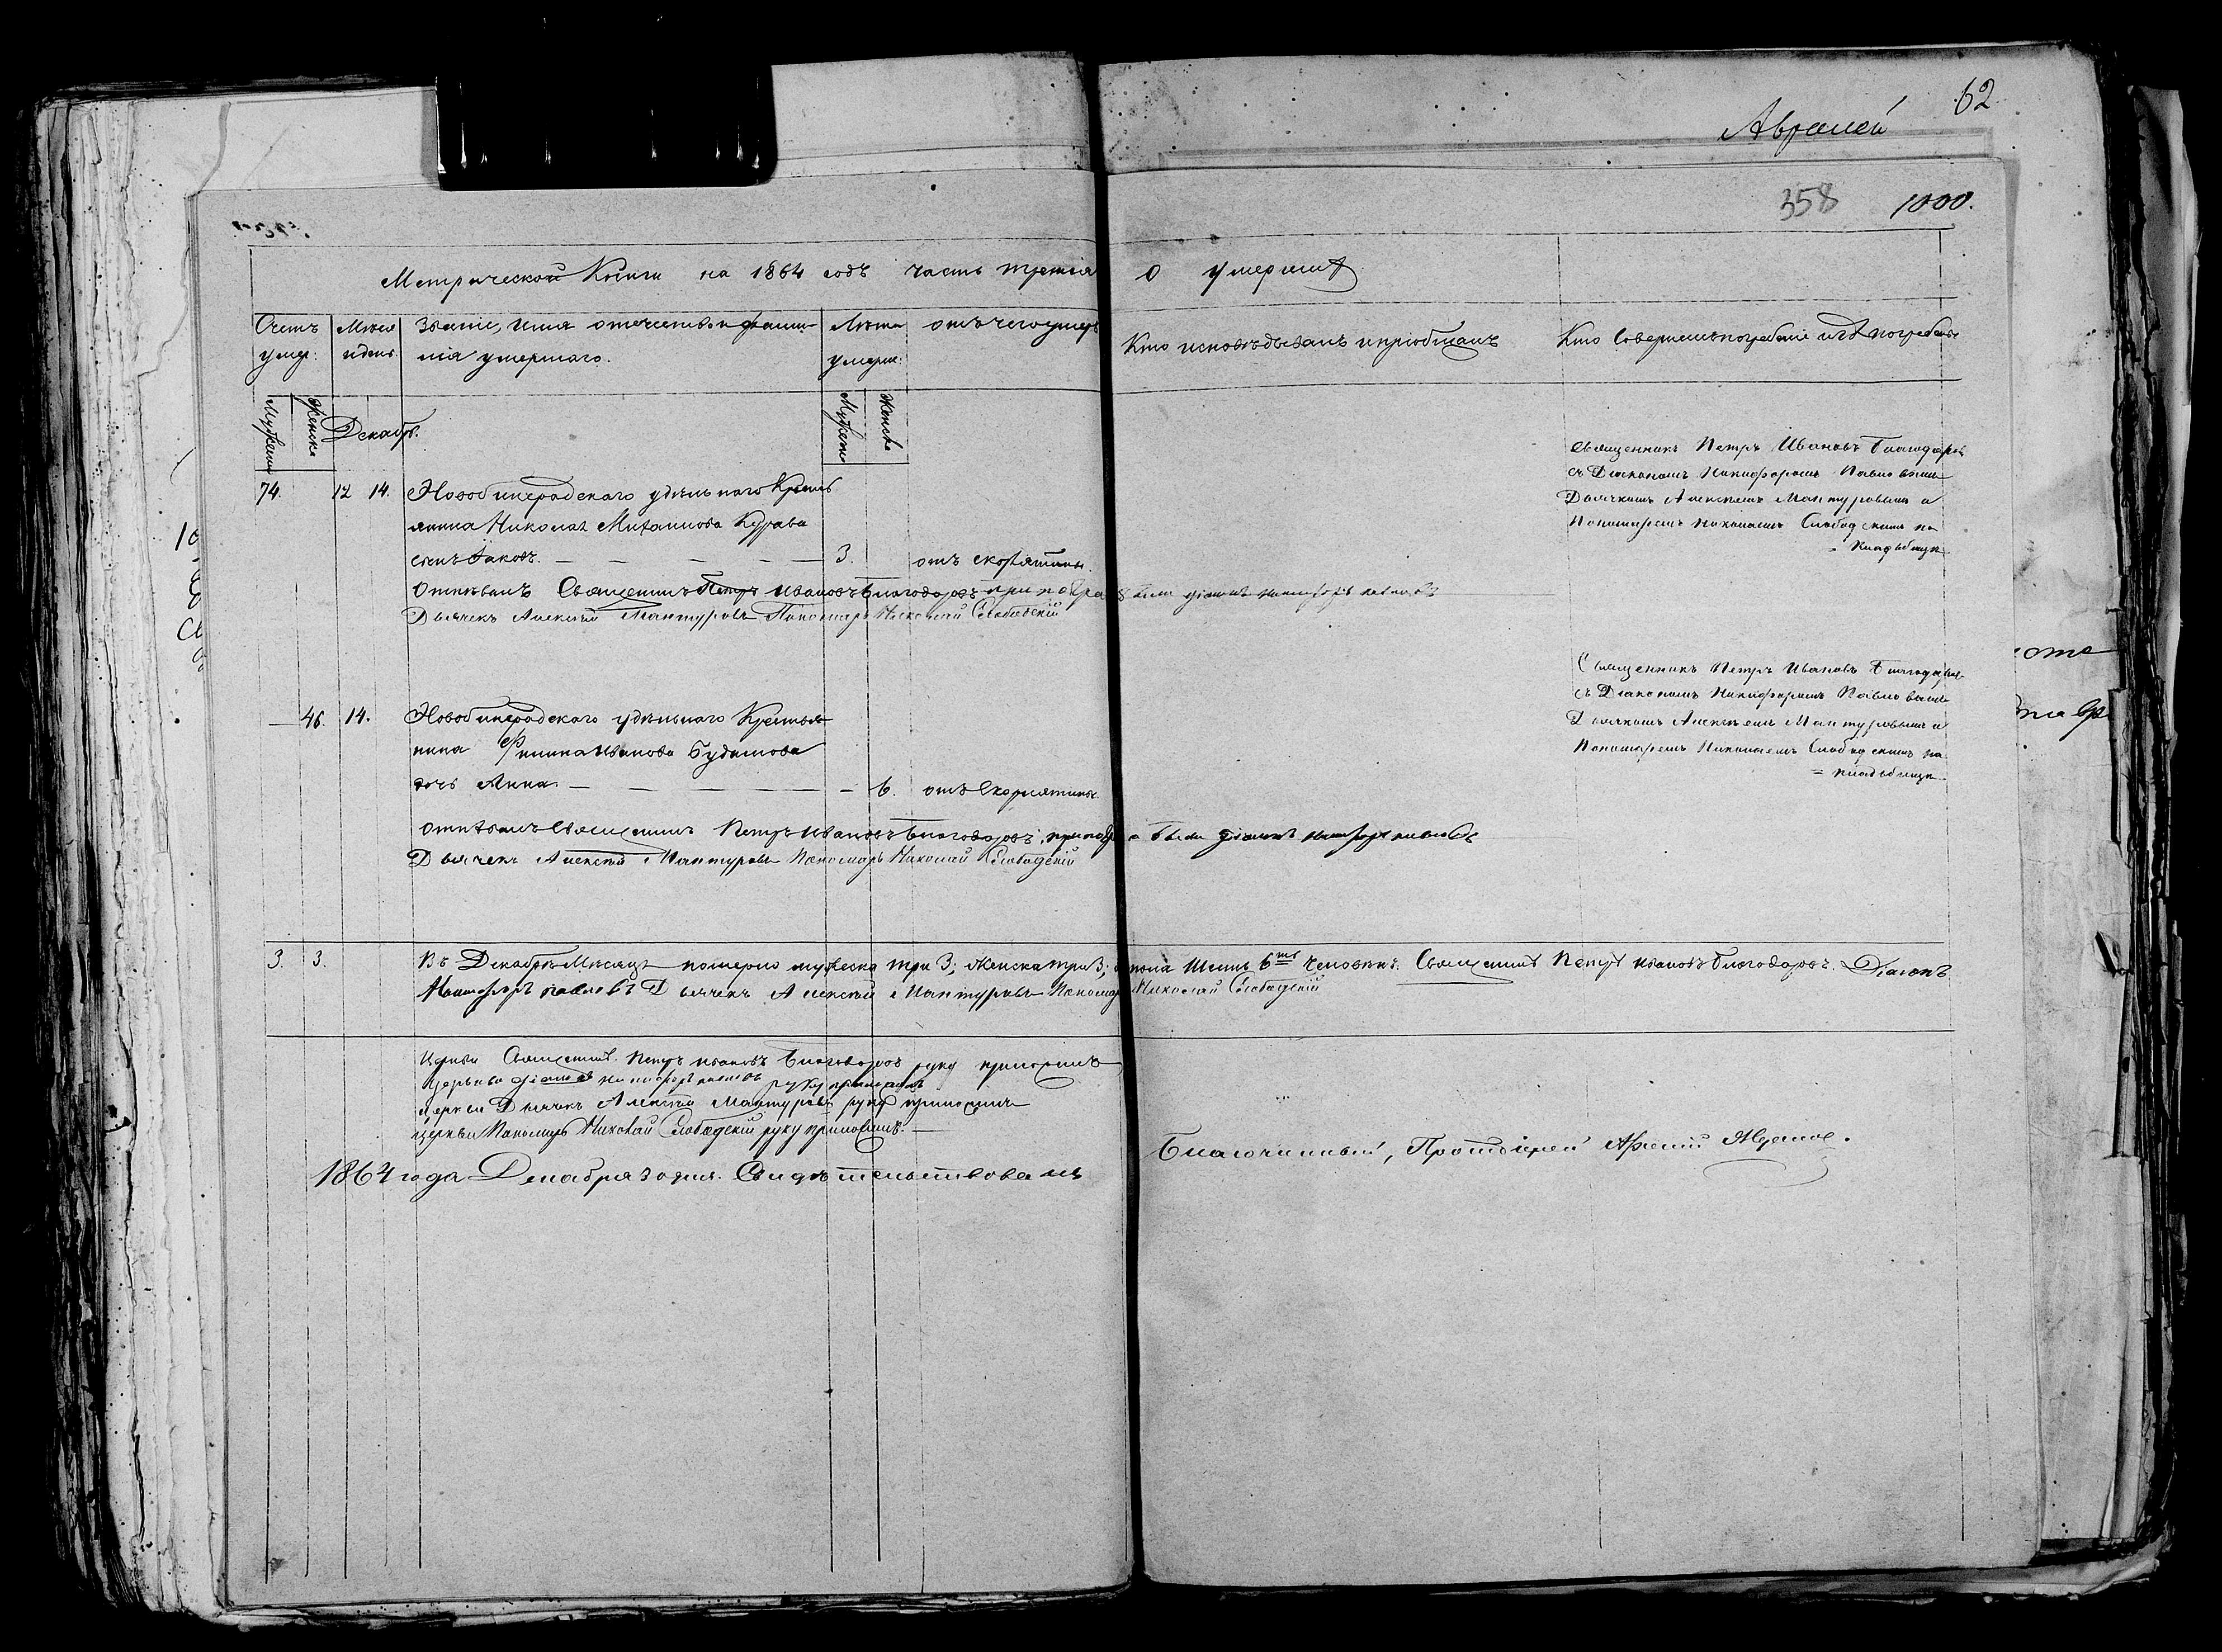 62
Авралей
358 1000.
Метрической Книги на 1864 годъ часть третія о умершихъ
Счетъ умер: Мужеска Женска
Месяц и день.
Званіе, имя отечество и фамилія умершаго.
Лѣта умерш: Мужеск Женска
отъ чего умеръ
Кто исповѣдывалъ и пріобщалъ
Кто совершалъ погребеніе и гдѣ погребены
Декабр.
74. 12 14. Новобинарадскаго удѣльнаго Крестьянина Николая Михаилова сынъ Іаковъ. — — — — — 3. отъ скорлятины.
Священникъ Петръ Ивановъ Благодаровъ
съ Діакономъ Никифоромъ Павловымъ
Дьячкомъ Алексѣемъ Мантуровымъ и
Пономаремъ Николаемъ Слободскимъ на
= кладбищѣ
Отпѣвалъ Священникъ Петръ Ивановъ Благодаровъ при погреб были діаконъ Никифоръ Павловъ
Дьячекъ Алексѣй Мантуровъ Пономарь Николай Слободскій
— 46. 14. Новобинарадскаго удѣльнаго Крестьянина Филипа Иванова дочь Анна — — — — — — 6. отъ скорлятины.
Священникъ Петръ Ивановъ Благодаров
съ Діакономъ Никифоромъ Павловымъ
Дьячкомъ Алексѣемъ Мантуровымъ и
Пономаремъ Николаемъ Слободскимъ на
= кладбищѣ
Отпѣвалъ Священникъ Петръ Ивановъ Благодаровъ, при погреб были діаконъ Никифоръ Павловъ
Дьячекъ Алексѣй Мантуровъ Пономарь Николай Слободскій
3. 3. Въ Декабрѣ Мѣсяцѣ померло мужеска три 3; женска три 3; пола Шесть 6ть человѣкъ. Священникъ Петръ Ивановъ Благодаровъ. Діаконъ
Никифоръ Павловъ Дьячекъ Алексѣй Мантуровъ Пономарь Николай Слободскій
Церкви Священникъ Петръ Ивановъ Благодаровъ руку приложилъ
Церкви діаконъ Никифоръ Павловъ руку приложилъ
Церкви Дьячекъ Алексѣй Мантуровъ руку приложилъ
Церкви Пономарь Николай Слободскій руку приложилъ. —
1864 года Декабря 30 дня. Свидѣтельствовалъ Благочинный, Протоіерей